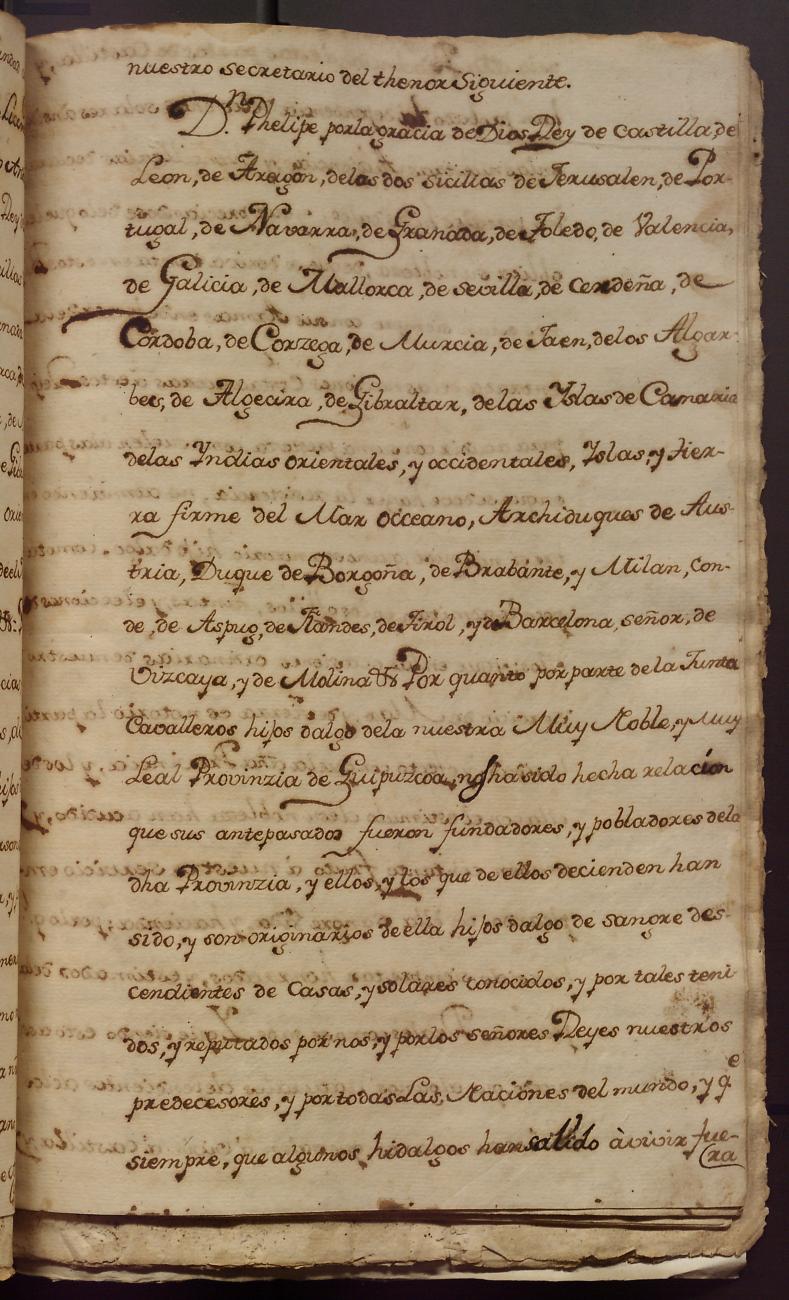 nuestro secretario del thenor Siguiente.
Dn. Phelipe por la gracia de Dios Rey de Castilla, de
Leon, de Aragon, delas dos sicilias de Jerusalen, de Por-
tugal, de Navarra, de Granada, de Toledo, de Valencia,
de Galicia, de Mallorca, de sevilla, de cerdeña, de
Cordoba, de Corzega, de Murcia, de Jaen, delos Algar-
bes, de Algecira, de Gibraltar, delas Yslas de Canaria
delas Yndias orientales, y occidentales, Yslas, y tier-
ra firme del Mar occeano, Archiduques de Aus-
tria, Duque de Borgoña, de Brabante, y Milan, Con-
de, de Aspug, de Flandes, de Tirol, y de Barcelona, señor, de
Vizcaya, y de Molina &a Por quanto por parte de la Junta
Cavalleros hijos dalgo dela nuestra Muy Noble, y Muy
Leal Provinzia de Guipuzcoa, nos ha sido hecha relacion
que sus antepasados fueron fundadores, y pobladores dela
dha Provinzia, y ellos, y los que de ellos decienden han
sido, y son originarios de ella hijos dalgo de sangre des-
cendientes de Casas, y solares conocidos, y por tales teni
dos, y reputados por nos, y por los señores Reyes nuestros
predecesores, y por todas Las Naciones del mundo, y qe
siempre, que algunos hidalgos han salido à vivir fue-
ra